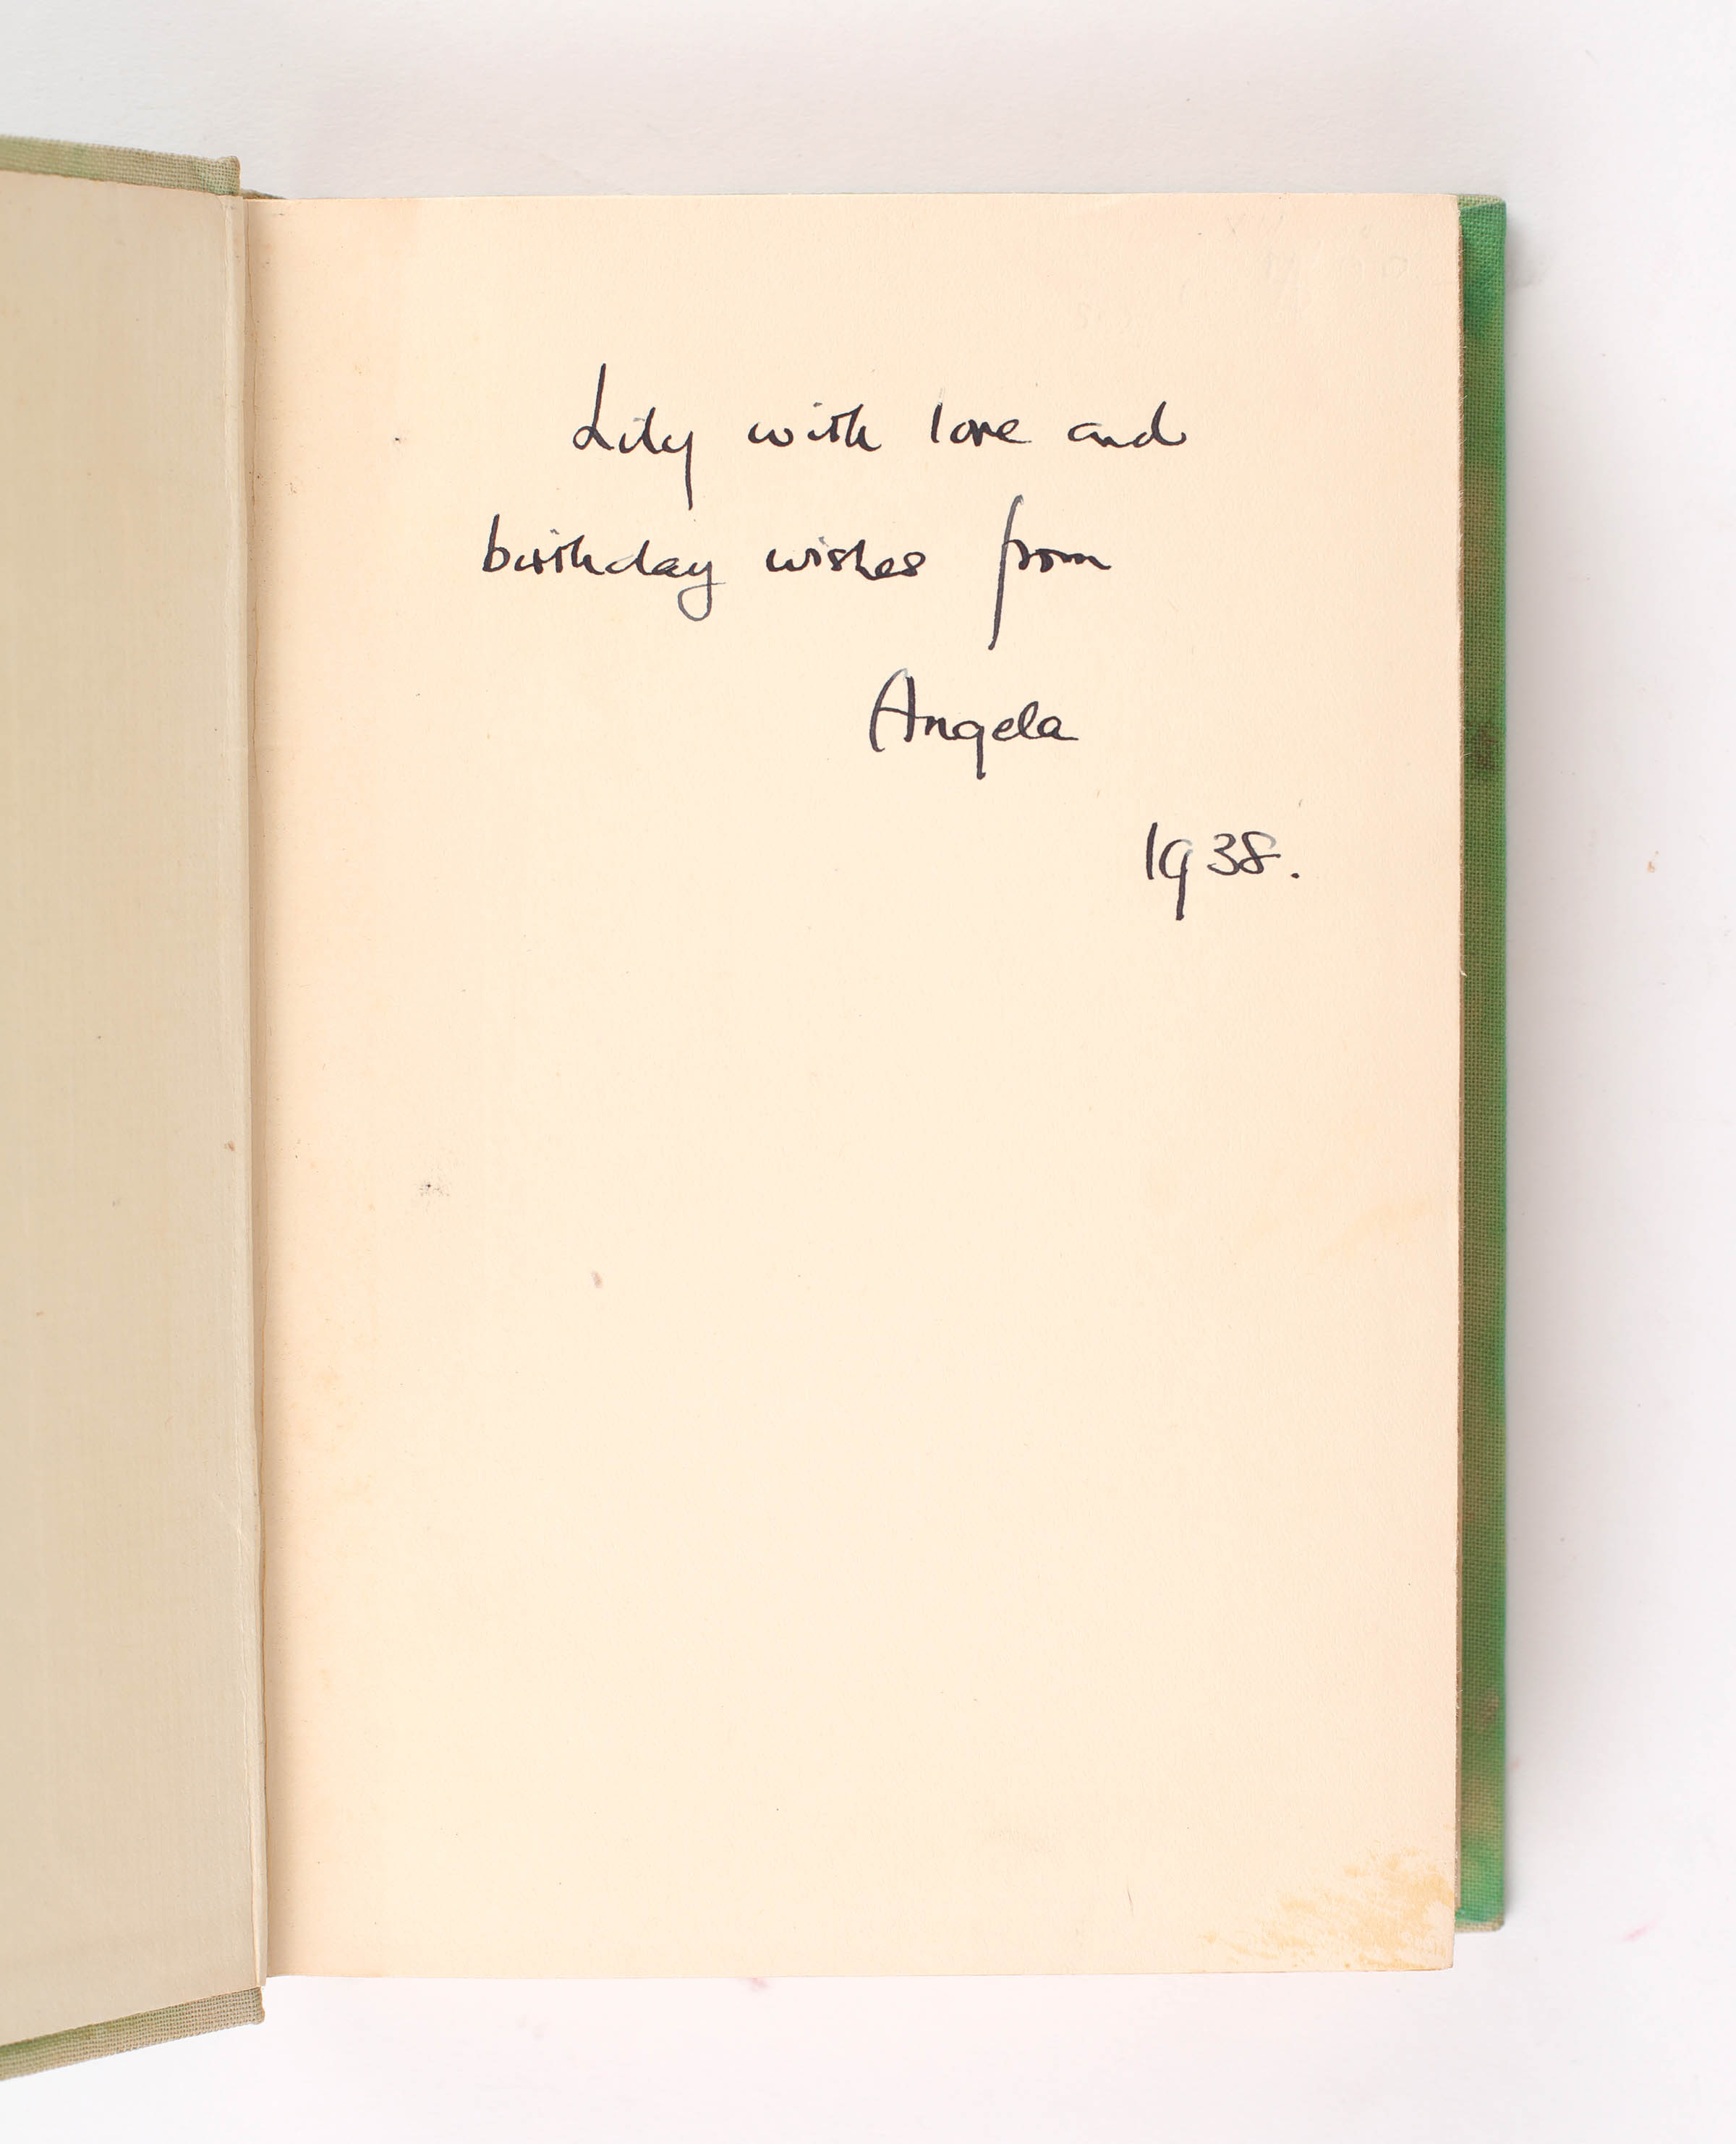 Lily with love and
birthday wishes from
Angela
1938.